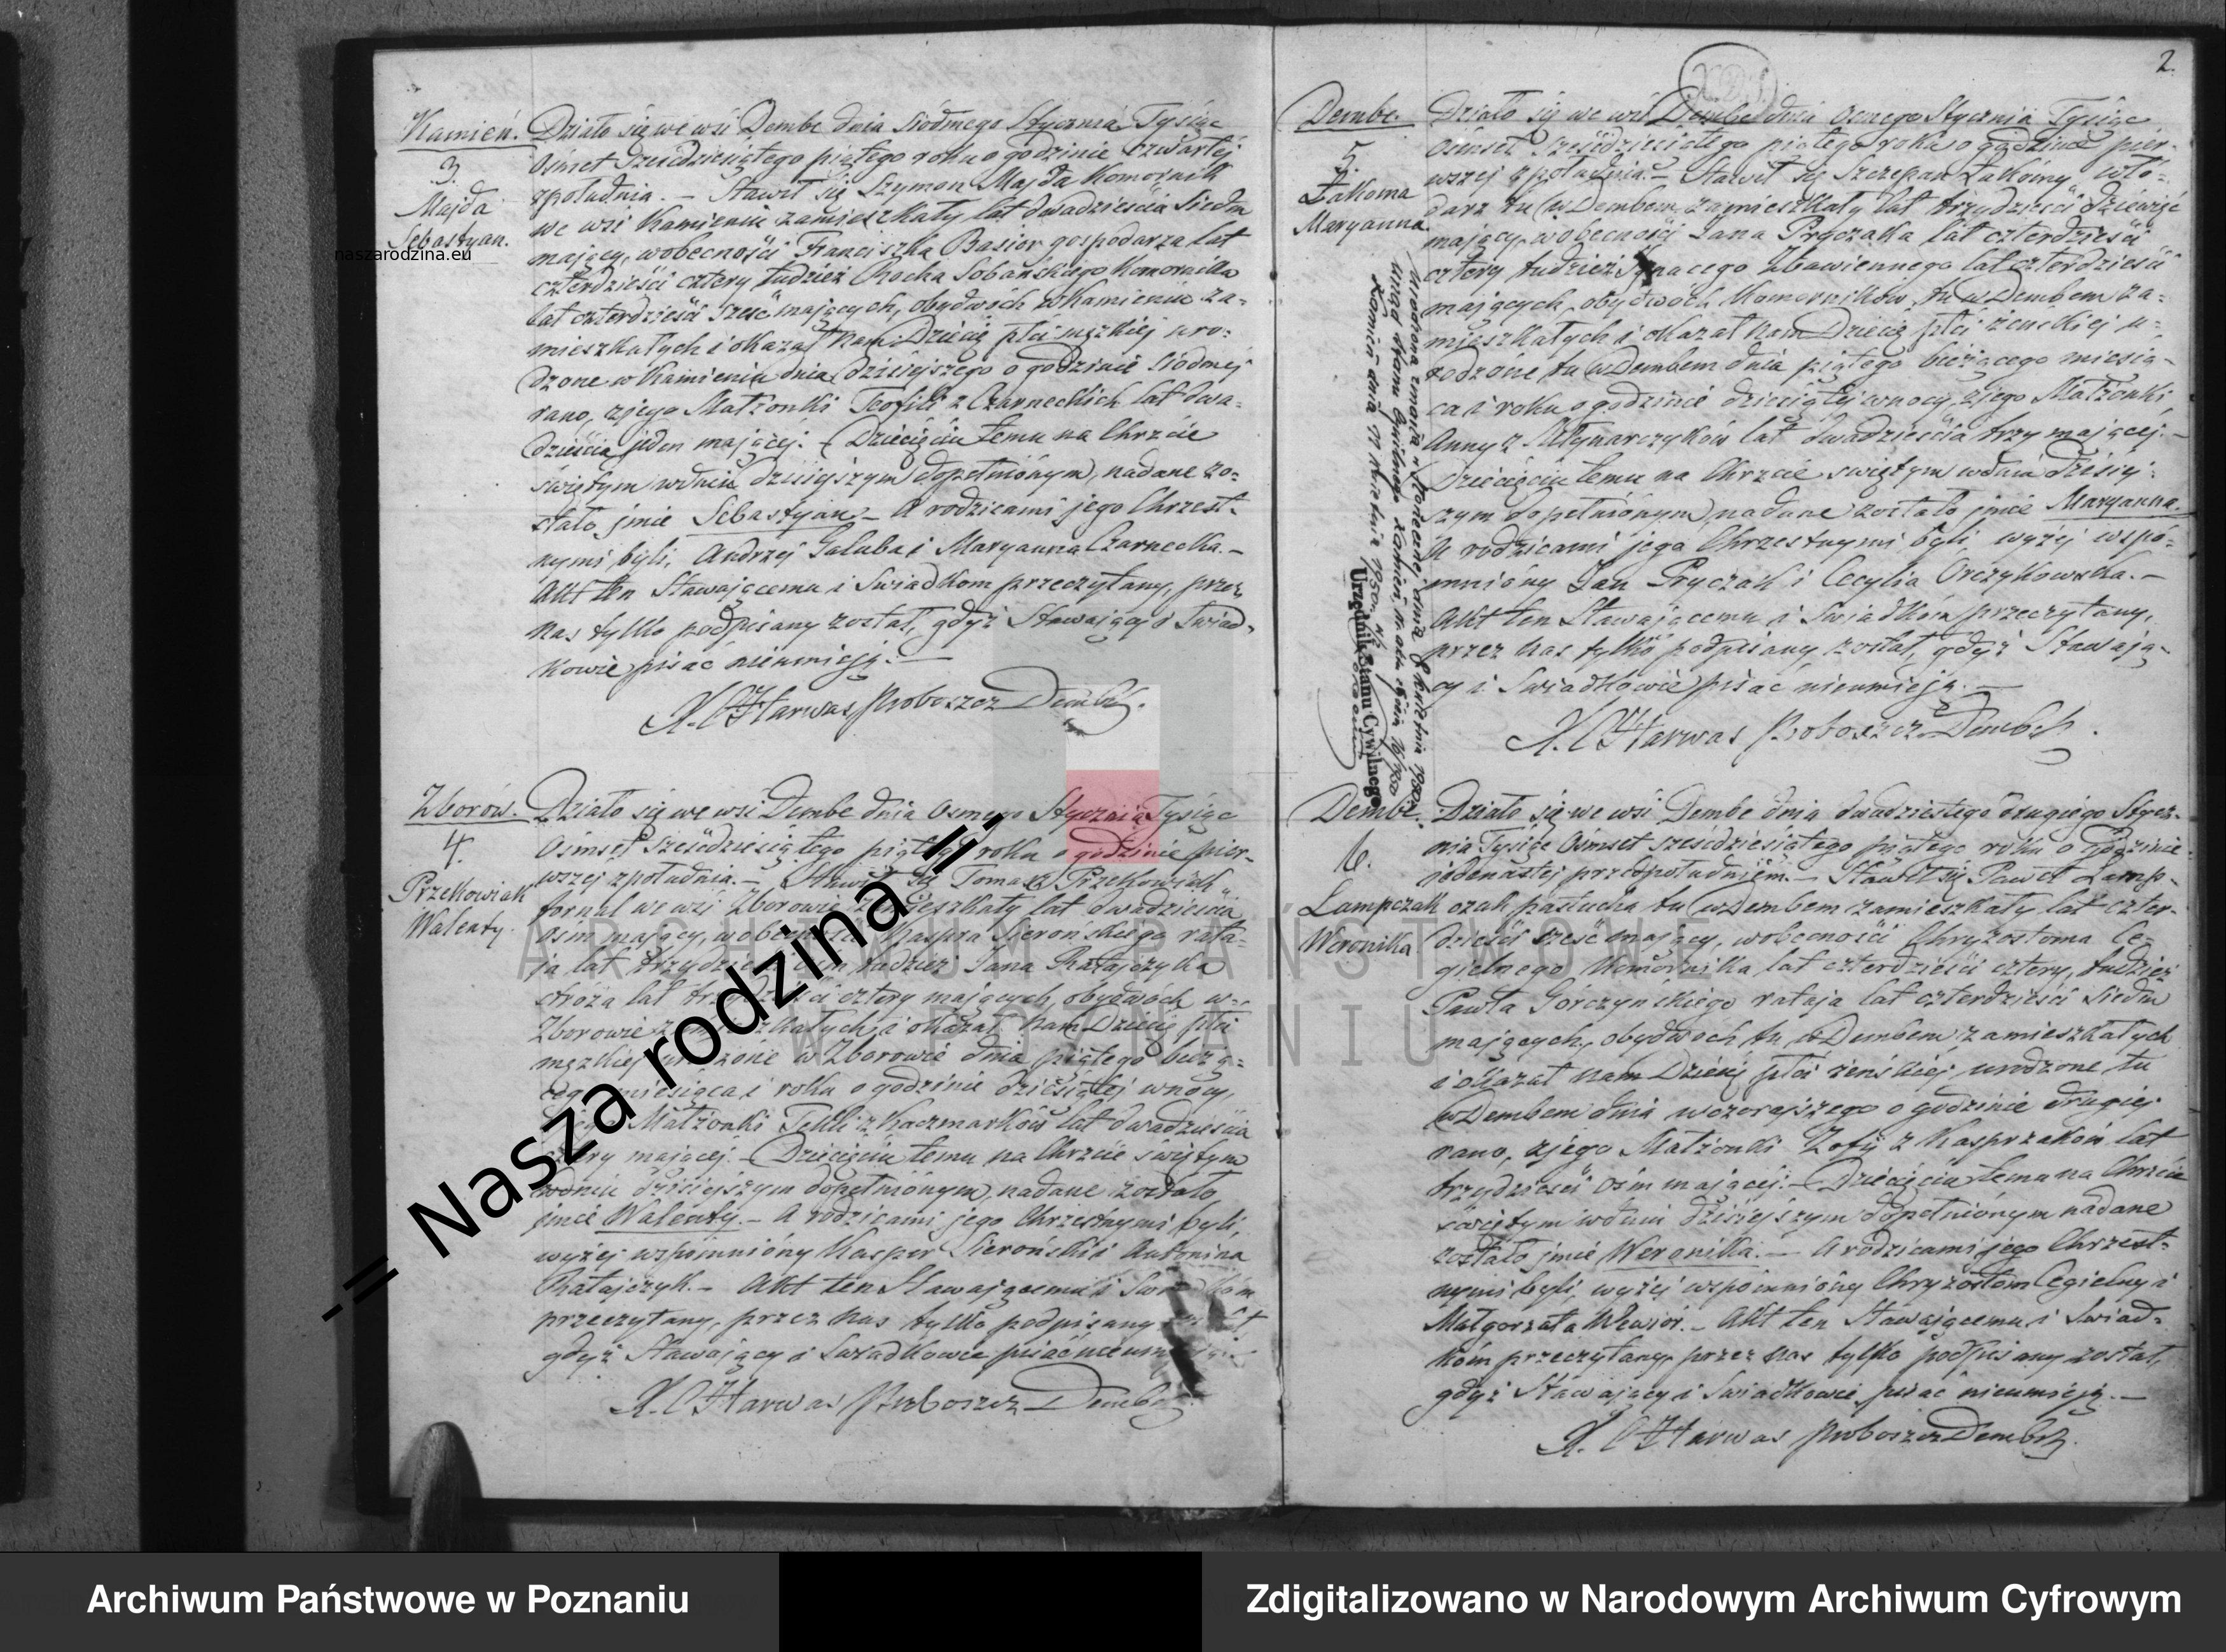 Kamień.
3.
Majda
Sebastyan.
naszarodzina.eu
Działo się we wsi Dembe dnia siódmego Stycznia Tysiąc
Ośmset sześdziesiątego piątego roku o godzinie czwartej
zpołudnia. – Stawił się Szymon Majda Komornik
we wsi Kamieniu zamieszkały lat dwadzieścia siedm
mający, wobecności Franciszka Basior gospodarza lat
czterdzieści cztery tudzież Rocha Sobańskiego Komornika
lat czterdzieści sześć mających, obydwóch w Kamieniu za=
mieszkałych i okazał nam Dziecię płci męzkiej uro=
dzone w Kamieniu dnia dzisiejszego o godzinie siódmej
rano, zjego Małżonki Teofili z Czarneckich lat dwa=
dzieścia jeden mającej. – Dziecięciu temu na Chrzcie
świętym wdniu dzisiejszym dopełnionym, nadane zo=
stało jmie Sebastyan. – A rodzicami jego Chrzest=
nymi byli, Andrzej Galuba i Maryanna Czarnecka. –
Akt ten Stawającemu i Świadkom przeczytany, przez
nas tylko podpisany został, gdyż Stawający i Świad=
kowie pisać nieumieją. –
X. Harwas Proboszcz Dembs.
Zborów.
4.
Przekowiak
Walenty.
Działo się we wsi Dembe dnia Osmego Stycznia Tysiąc
Ośmset sześdziesiątego piątego roku o godzinie pier=
wszej zpołudnia. – Stawił się Tomasz Przekowiak
fornal we wsi Zborowie zamieszkały lat dwadzieścia
ośm mający, wobecności Kaspra Sierońskiego rata=
ja lat trzydzieści ośm tudzież Jana Ratajczyka
stróża lat trzydzieści cztery mających, obydwóch w=
Zborowie zamieszkałych, i okazał nam Dziecię płci
męzkiej urodzone w Zborowie dnia piątego bieżą=
cego miesiąca i roku o godzinie dziesiątej wnocy,
zjego Małżonki Tekli z Kaczmarków lat dwadzieścia
cztery mającej. – Dziecięciu temu na Chrzcie świętym
wdniu dzisiejszym dopełnionym, nadane zostało
jmie Walenty. – A rodzicami jego Chrzestnymi byli,
wyżej wspomniony Kasper Sieroński i Antonina
Ratajczyk. – Akt ten Stawającemu i Świadkom
przeczytany, przez nas tylko podpisany został
gdyż Stawający i Świadkowie pisać nieumieją.
X. Harwas Proboszcz Dembs.
2.
Dembe.
5.
Żakoma
Maryanna.
Działo się we wsi Dembe dnia Osmego Stycznia Tysiąc
Ośmset sześdziesiątego piątego roku o godzinie pier=
wszej zpołudnia. – Stawił się Szczepan Żakomy wło=
darz tu w Dembem zamieszkały lat trzydzieści dziewięć
mający, wobecności Jana Pryczaka lat czterdzieści
cztery tudzież Ignacego Zbawiennego lat czterdzieści
mających, obydwóch Komorników tu w Dembem za=
mieszkałych i okazał nam Dziecię płci żeńskiej u=
rodzone tu w Dembem dnia piątego bieżącego miesią=
ca i roku o godzinie dziesiątej wnocy, zjego Małżonki
Anny z Młynarczyków lat dwadzieścia trzy mającej. –
Dziecięciu temu na Chrzcie świętym wdniu dzisiej=
szym dopełnionym, nadane zostało jmie Maryanna.
A rodzicami jego Chrzestnymi byli, wyżej wspo=
mniony Jan Pryczak i Cecylia Orczykowska. –
Akt ten Stawającemu i Świadkom przeczytany,
przez nas tylko podpisany został, gdyż Stawają=
cy i Świadkowie pisać nieumieją. –
X. Harwas Proboszcz Dembsk.
Urzędnik Stanu Cywilnego
Dembe.
6.
Lampczak
Weronika
Działo się we wsi Dembe dnia dwudziestego drugiego Stycz=
nia Tysiąc Ośmset sześdziesiątego piątego roku o godzinie
jedenastej przedpołudniem. – Stawił się Paweł Lamp=
czak, pastucha tu w Dembem zamieszkały lat czter=
dzieści sześć mający, wobecności Chryzostoma Ce=
gielnego Komornika lat czterdzieści cztery, tudzież
Pawła Górczyńskiego rataja lat czterdzieści siedm
mających, obydwóch tu w Dembem zamieszkałych
i okazał nam Dziecię płci żeńskiej urodzone tu
w Dembem dnia wczorajszego o godzinie drugiej
rano, zjego Małżonki Zofij z Kasprzaków lat
trzydzieści ośm mającej. – Dziecięciu temu na Chrzcie
świętym wdniu dzisiejszym dopełnionym nadane
zostało jmie Weronika. – A rodzicami jego Chrzest=
nymi byli, wyżej wspomniony Chryzostom Cegielny i
Małgorzata Wewiór. – Akt ten Stawającemu i Świad=
kom przeczytany, przez nas tylko podpisany został,
gdyż Stawający i Świadkowie pisać nieumieją. –
X. Harwas Proboszcz Dembsk.
ARCHIWUM PAŃSTWOWE
W POZNANIU
-= Nasza rodzina =-
Archiwum Państwowe w Poznaniu
Zdigitalizowano w Narodowym Archiwum Cyfrowym